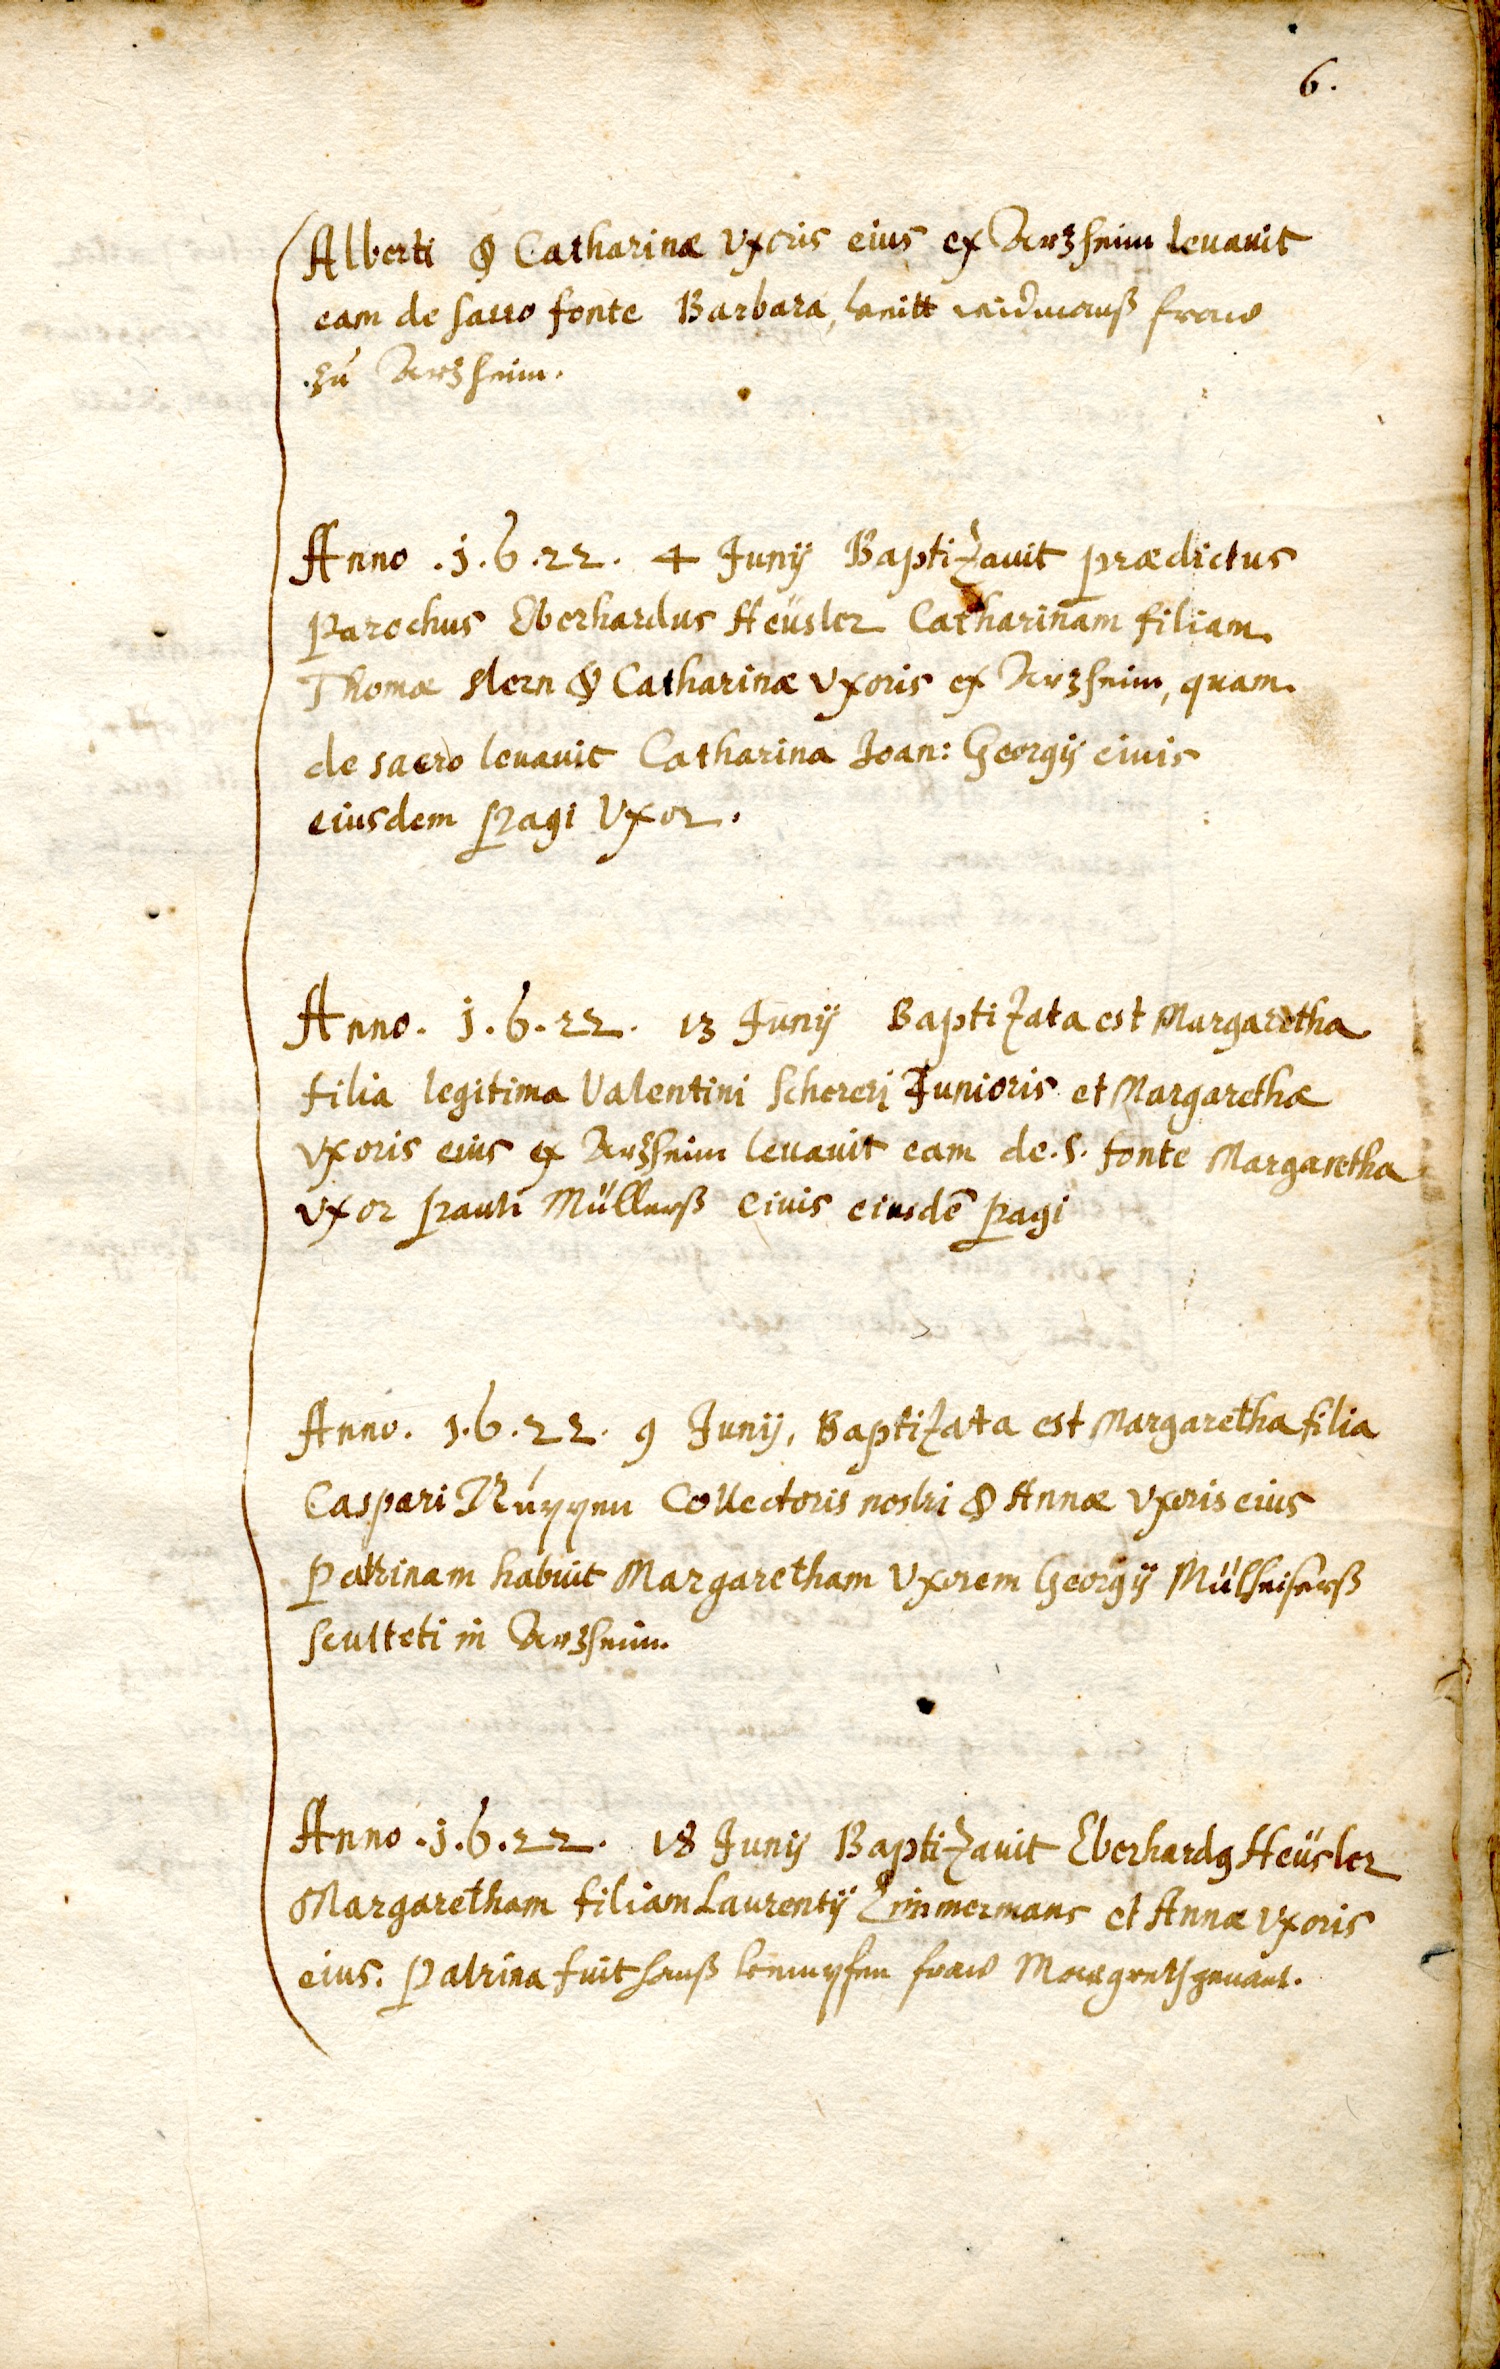 6.
Alberti & Catharinæ vxoris eius ex Arzheim leuauit
eam de sacro fonte Barbara, fraw
zu Arzheim.
Anno .1.6.22. 4 Junij Baptizauit prædictus
Parochus Eberhardus Heüsler Catharinam filiam
Thomæ Stern & Catharinæ vxoris ex Arzheim, quam
de sacro leuauit Catharina Joan: Georgij ciuis
eiusdem Pagi Vxor.
Anno. 1.6.22. 13 Junij Baptizata est Margaretha
filia legitima Valentini Schereri Junioris et Margarethæ
vxoris eius ex Arzheim leuauit eam de .S. fonte Margaretha
vxor Pauli Müllerß Ciuis eiusdē pagi
Anno. 1.6.22. 9 Junij, Baptizata est Margaretha filia
Caspari Ruppen Collectoris nostri & Annæ vxoris eius
Patrinam habuit Margaretham Vxorem Georgij Mülheiserß
sculteti in Arzheim.
Anno .1.6.22. 18 Junij Baptizauit Eberhardg Heüsler
Margaretham filiam Laurentij Zimmermans et Annæ vxoris
eius. Patrina fuit hanß fraw Margreth genant.